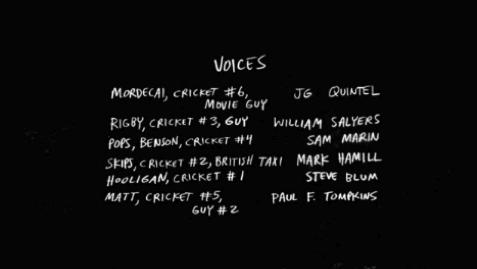 VOICES
MORDECAI, CRICKET #6, JG QUINTEL
MOVIE GUY
RIGBY, CRICKET #3, GUY WILLIAM SALYERS
POPS, BENSON, CRICKET #4 SAM MARIN
SKIPS, CRICKET #2, BRITISH TAXI MARK HAMILL
HOOLIGAN, CRICKET #1 STEVE BLUM
MATT, CRICKET #5, PAUL F. TOMPKINS
GUY #2